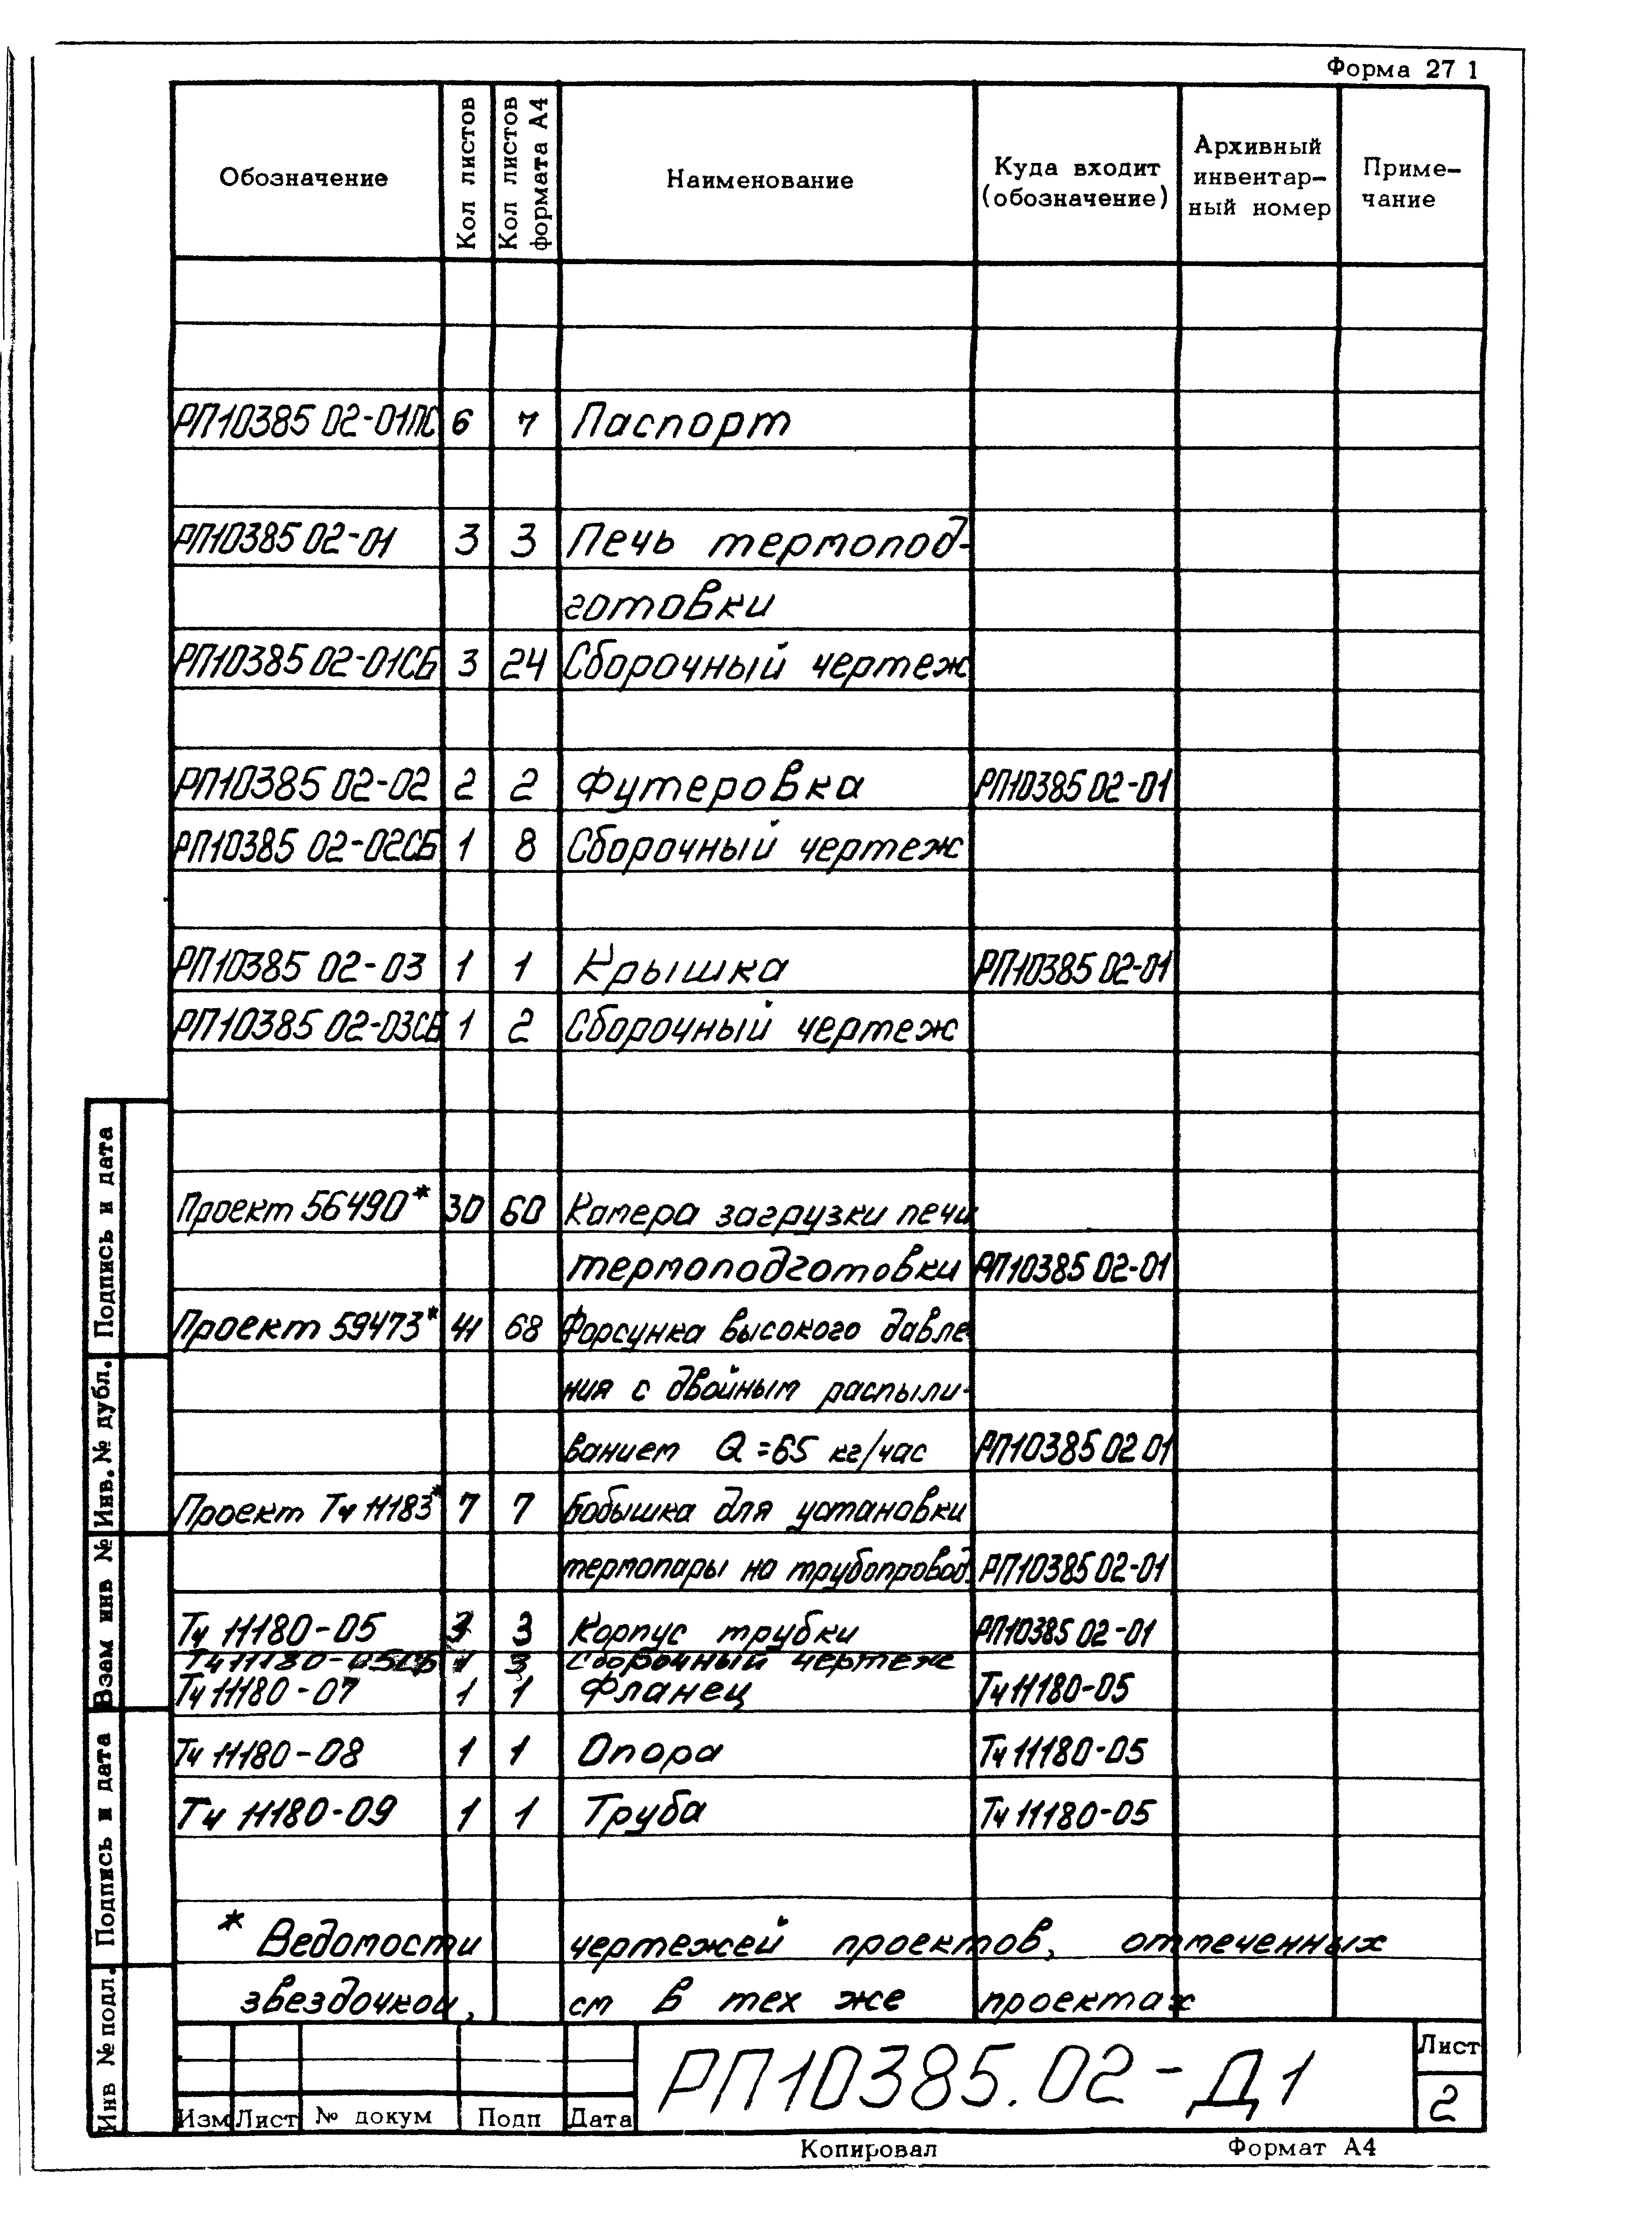 Форма 27 1
Обозначение Кол листов Кол листов формата А4 Наименование Куда входит (обозначение) Архивный инвентар- ный номер Приме- чание
РП10385 02-01ПС 6 7 Паспорт
РП10385 02-01 3 3 Печь термопод-
готовки
РП10385 02-01СБ 3 24 Сборочный чертеж
РП10385 02-02 2 2 Футеровка РП10385 02-01
РП10385 02-02СБ 1 8 Сборочный чертеж
РП10385 02-03 1 1 Крышка РП10385 02-01
РП10385 02-03СБ 1 2 Сборочный чертеж
Проект 56490* 30 60 Камера загрузки печи
термоподготовки РП10385 02-01
Проект 59473* 41 68 Форсунка высокого давле-
ния с двойным распыли-
ванием Q=65 кг/час РП10385 02 01
Проект Тч 11183* 7 7 Бобышка для установки
термопары на трубопровод. РП10385 02-01
Тч 11180-05 3 Корпус трубки РП10385 02-01
Тч 11180-05СБ 1 3 Сборочный чертеж
Тч 11180-07 1 1 Фланец Тч 11180-05
Тч 11180-08 1 1 Опора Тч 11180-05
Тч 11180-09 1 1 Труба Тч 11180-05
* Ведомости чертежей проектов, отмеченных
звездочкой, см в тех же проектах
Подпись и дата
Инв. № дубл.
Взам инв №
Подпись и дата
Инв № подл.
Изм Лист № докум Подп Дата
РП10385.02-Д1
Лист
2
Копировал Формат А4